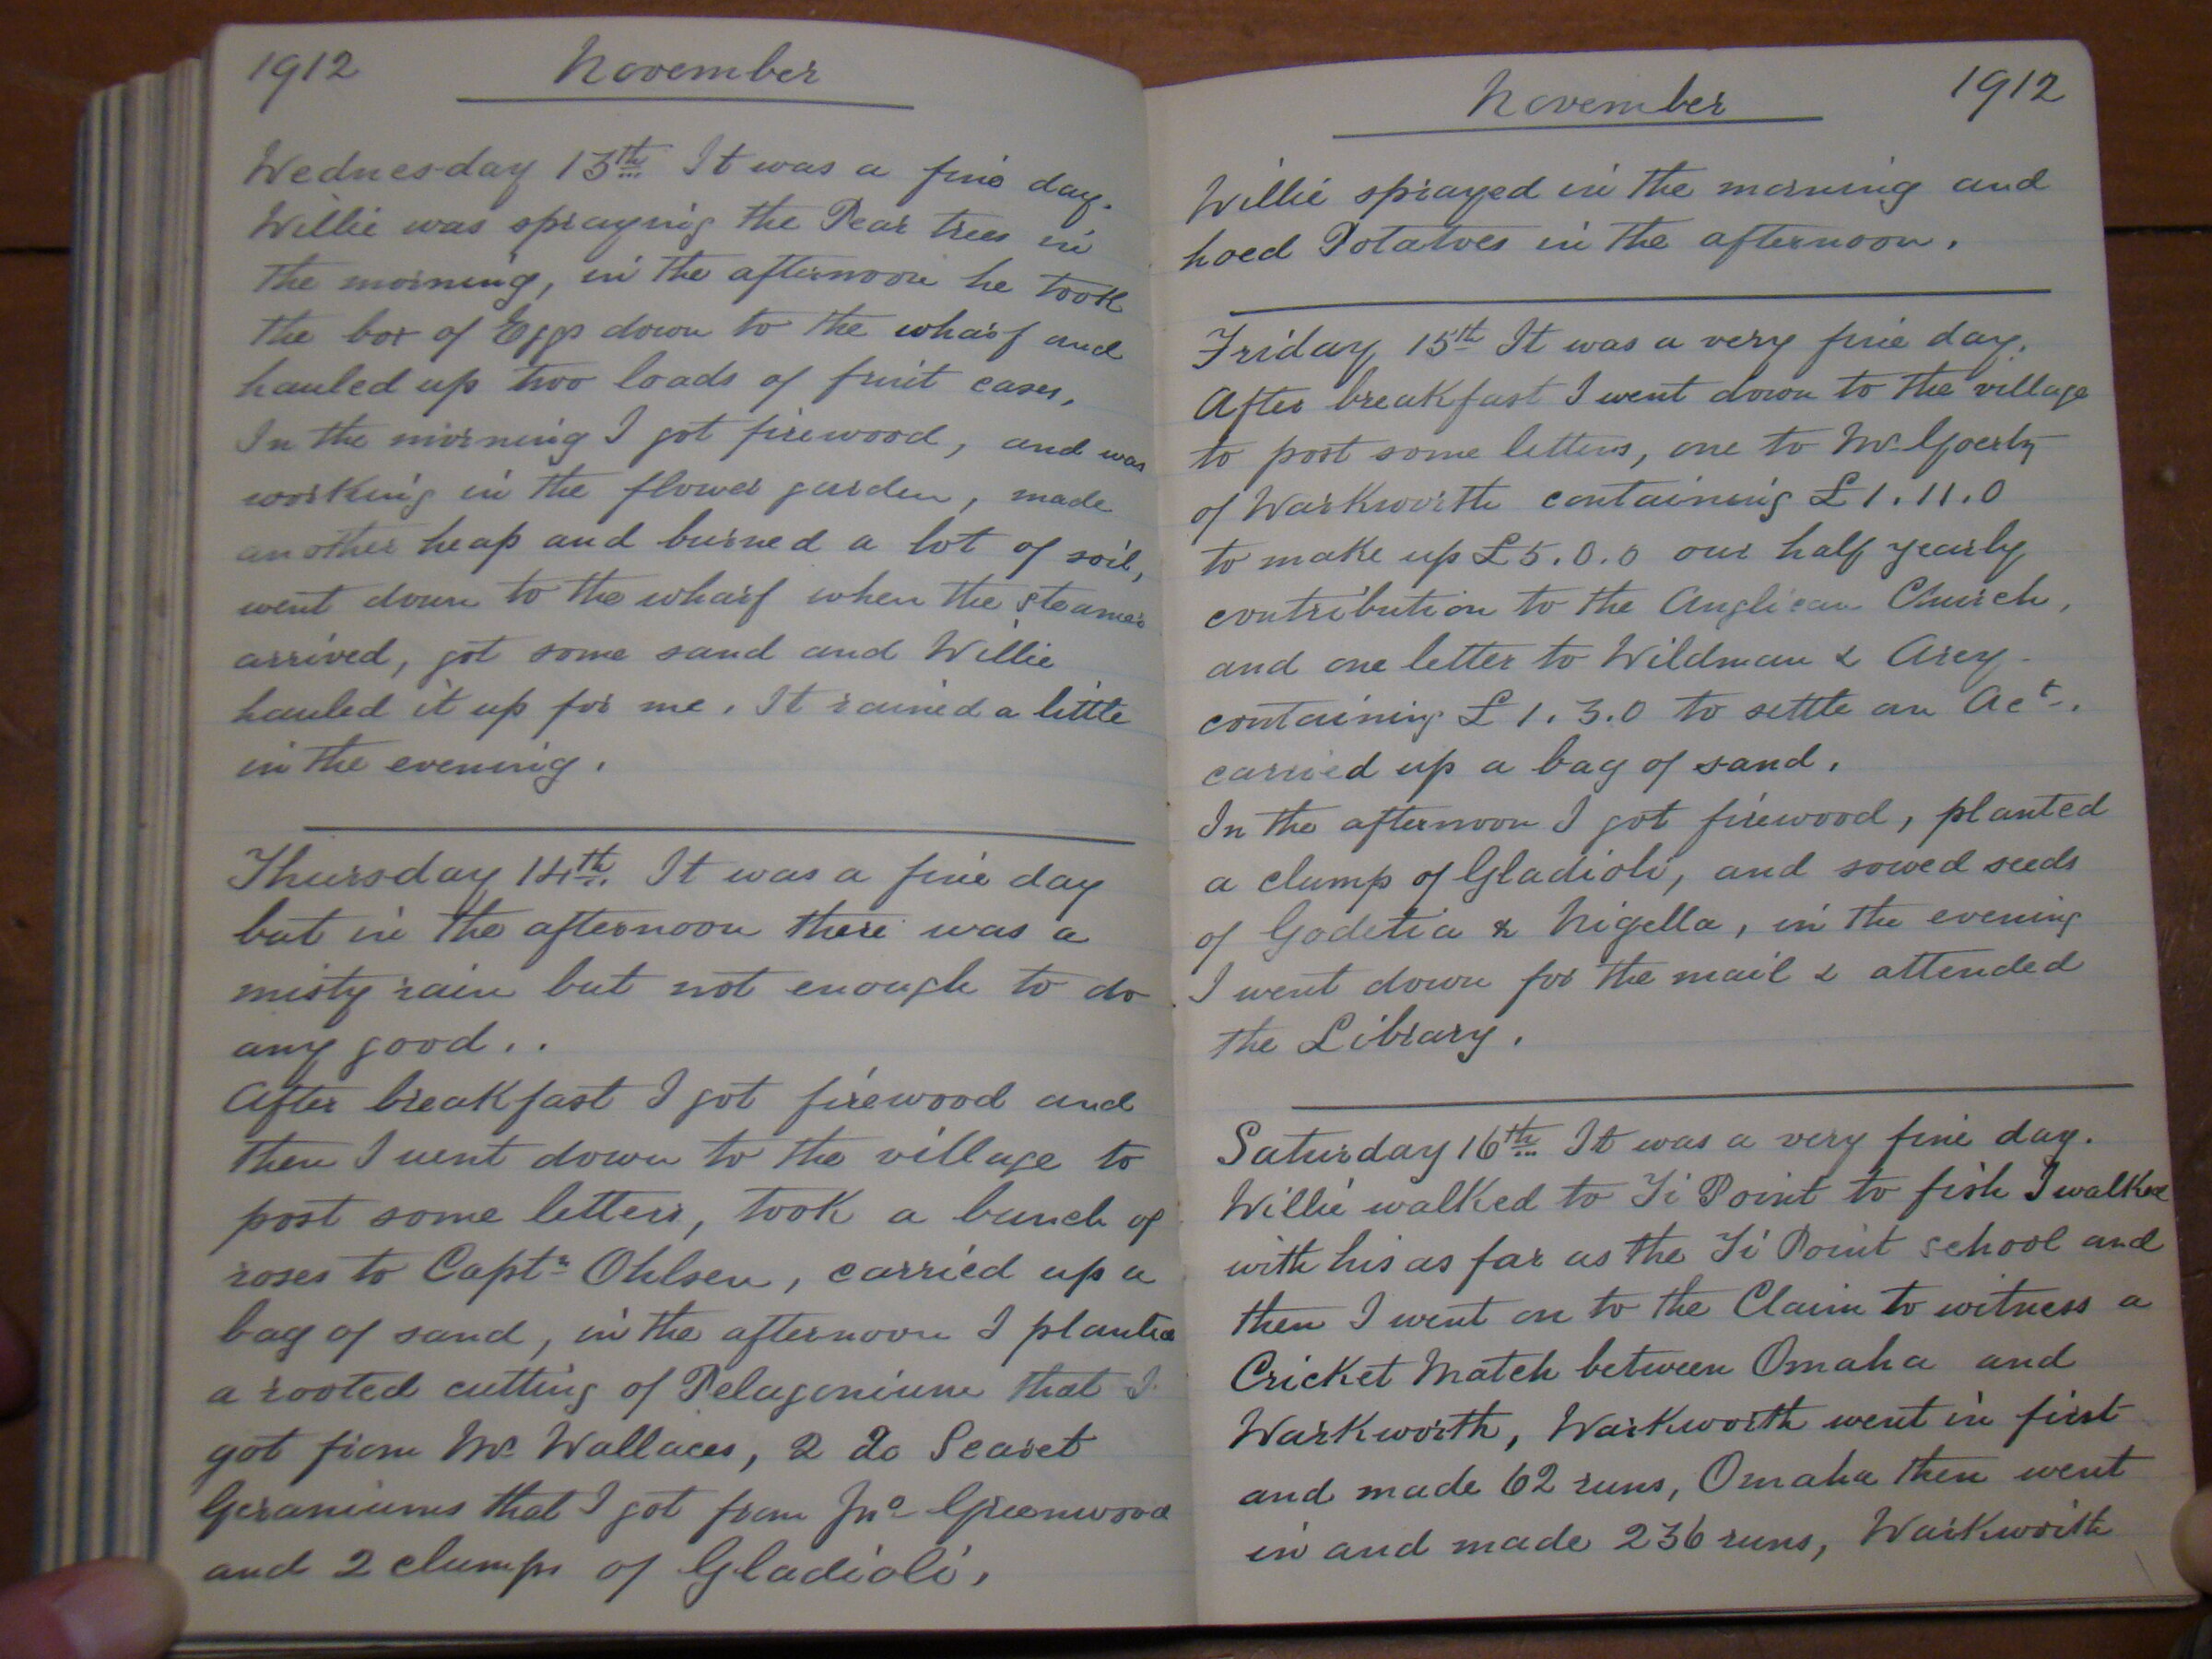 1912 November
Wednesday 13th It was a fine day.
Willie was spraying the Pear trees in
the morning, in the afternoon he took
the box of Eggs down to the wharf and
hauled up two loads of fruit cases,
In the morning I got firewood, and was
working in the flower garden, made
another heap and burned a lot of soil,
went down to the wharf when the steamer
arrived, got some sand and Willie
hauled it up for me. It rained a little
in the evening.
Thursday 14th. It was a fine day
but in the afternoon there was a
misty rain but not enough to do
any good..
After breakfast I got firewood and
then I went down to the village to
post some letters, took a bunch of
roses to Captn Ohlsen, carried up a
bag of sand, in the afternoon I planted
a rooted cutting of Pelagonium that I
got from Mr Wallaces, 2 do Scaret
Geraniums that I got from Jno Greenwood
and 2 clumps of Gladioli,
November 1912
Willie sprayed in the morning and
hoed Potatoes in the afternoon.
Friday 15th It was a very fine day.
After breakfast I went down to the village
to post some letters, one to Mr Goertz
of Warkworth containing £1.11.0
to make up £5.0.0 our half yearly
contribution to the Anglican Church,
and one letter to Wildman & Arey
containing £1.3.0 to settle an Act.
carried up a bag of sand.
In the afternoon I got firewood, planted
a clump of Gladioli, and sowed seeds
of Godetia & Nigella, in the evening
I went down for the mail & attended
the Library.
Saturday 16th It was a very fine day.
Willie walked to Ti Point to fish I walked
with his as far as the Ti Point school and
then I went on to the Claim to witness a
Cricket Match between Omaha and
Warkworth, Warkworth went in first
and made 62 runs, Omaha then went
in and made 236 runs, Warkworth